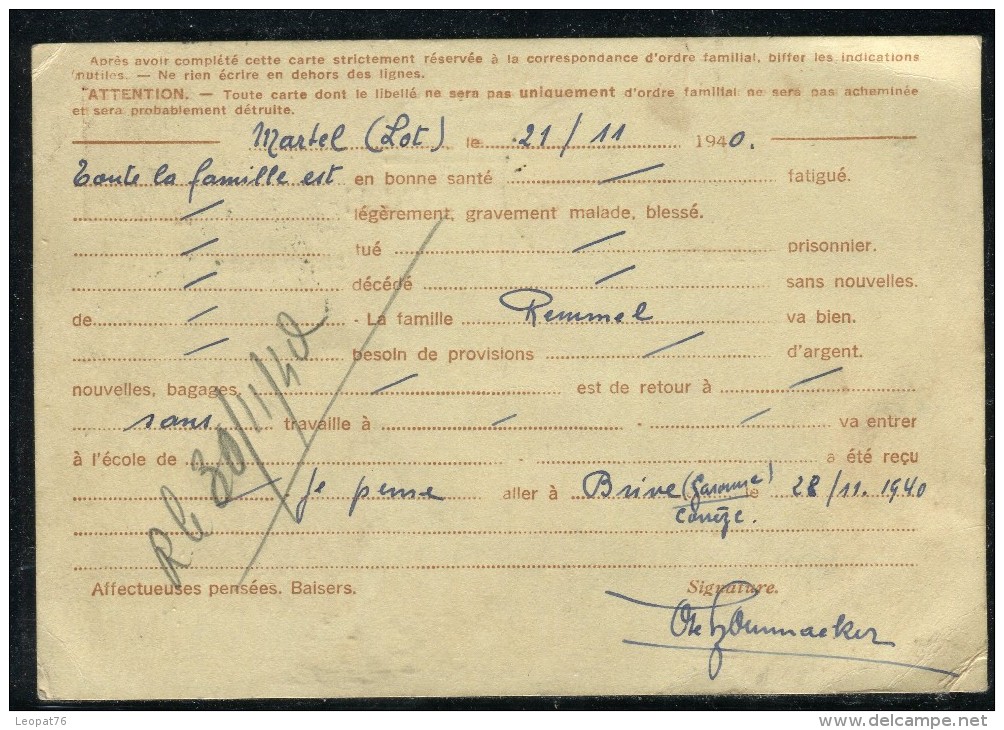 Après avoir complété cette carte strictement réservée à la correspondance d'ordre familial, biffer les indications
inutiles. — Ne rien écrire en dehors des lignes.
ATTENTION. — Toute carte dont le libellé ne sera pas uniquement d'ordre familial ne sera pas acheminée
et sera probablement détruite.
Martel (Lot) le 21/11 1940.
Toute la famille est en bonne santé / fatigué.
/ légèrement, gravement malade, blessé.
/ tué / prisonnier.
/ décédé / sans nouvelles.
de / - La famille Remmel va bien.
/ besoin de provisions / d'argent.
nouvelles, bagages / est de retour à /
sans travaille à / - / va entrer
à l'école de - a été reçu
je pense aller à Brive (Garonne) le 28/11.1940
Corrèze.
R le 30/11/40
Affectueuses pensées. Baisers.
Signature.
Leopat76
www.delcampe.net